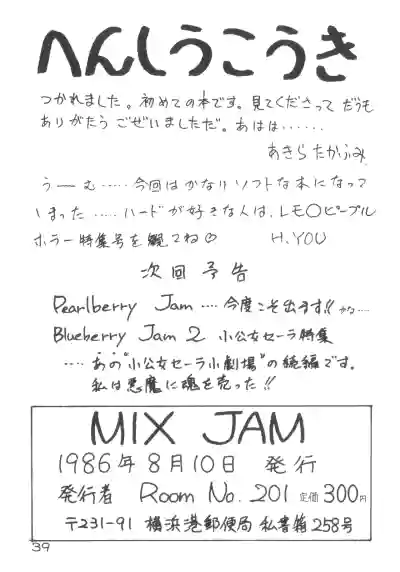 へんしうこうき
つかれました。初めての本です。見てくださって どうも
ありがたう ございましただ。あはは……
あきら たかふみ
うーむ……今回はかなりソフトな本になって
しまった……ハードが好きな人は、レモ○ピープル
ホラー特集号を観てね♡ H.YOU
次回予告
Pearlberry Jam ‥‥今度こそ出ます!! かな‥‥
Blueberry Jam 2 小公女セーラ特集
‥‥あの"小公女セーラ小劇場"の続編です。
私は悪魔に魂を売った!!
MIX JAM
1986年8月10日 発行
発行者 Room No. 201 定価 300円
〒231-91 横浜港郵便局 私書箱258号
39